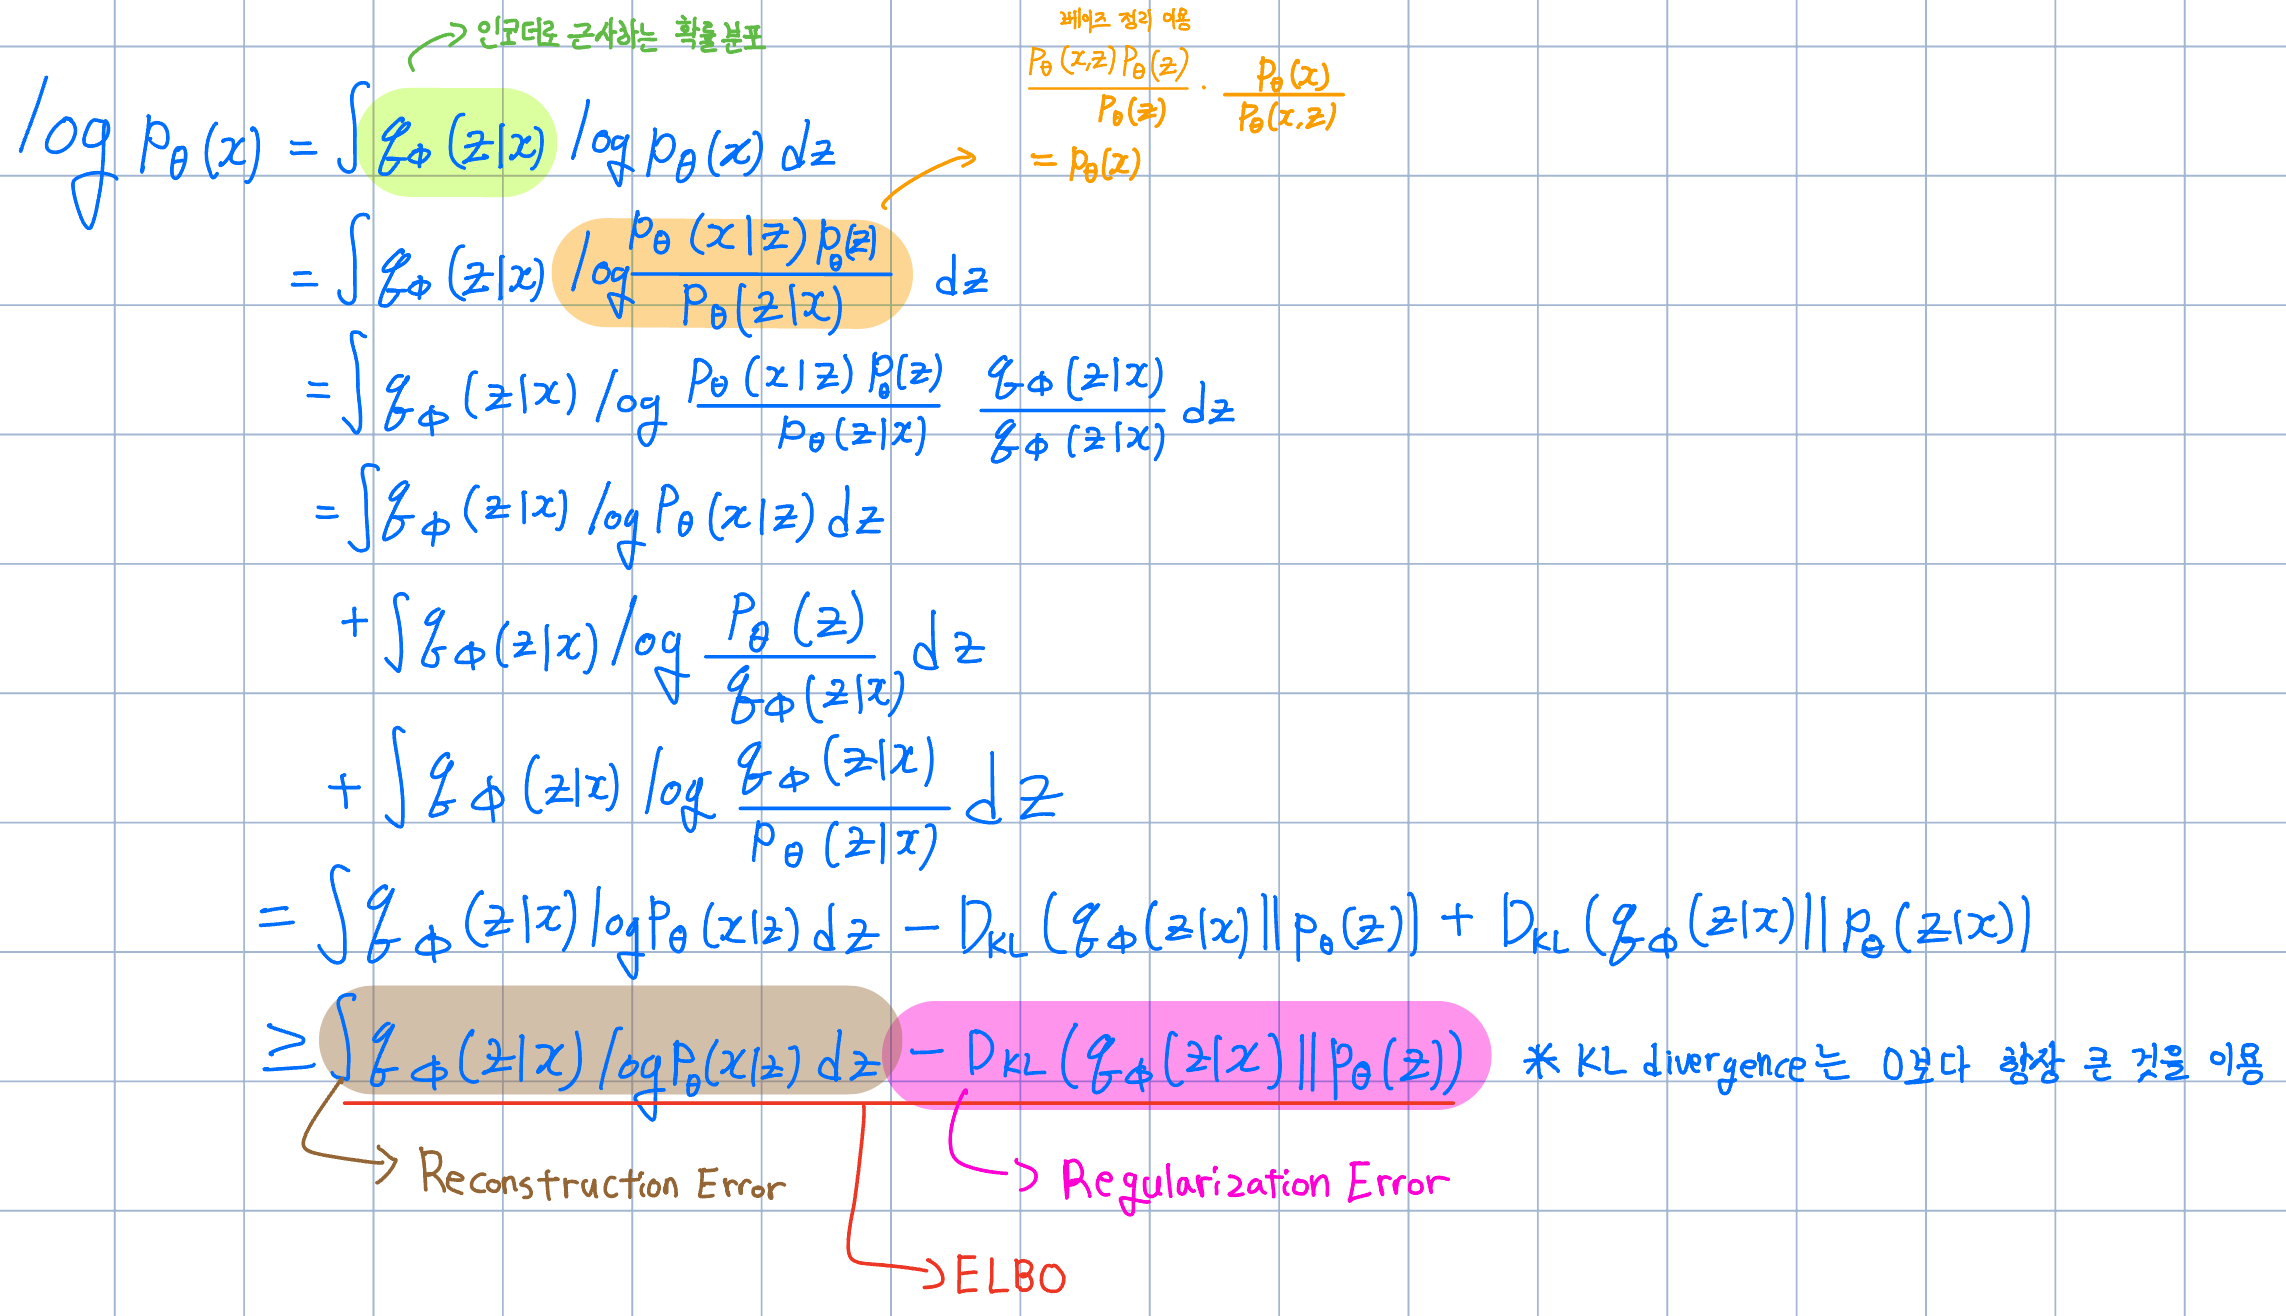 → 인코더로 근사하는 확률분포
베이즈 정리 이용
P_θ(x,z) P_θ(z) / P_θ(z) · P_θ(x) / P_θ(x,z)
= p_θ(x)
log p_θ(x) = ∫ q_Φ(z|x) log p_θ(x) dz
= ∫ q_Φ(z|x) log p_θ(x|z) p_θ(z) / p_θ(z|x) dz
= ∫ q_Φ(z|x) log p_θ(x|z) p_θ(z) / p_θ(z|x) q_Φ(z|x) / q_Φ(z|x) dz
= ∫ q_Φ(z|x) log P_θ(x|z) dz
+ ∫ q_Φ(z|x) log P_θ(z) / q_Φ(z|x) dz
+ ∫ q_Φ(z|x) log q_Φ(z|x) / p_θ(z|x) dz
= ∫ q_Φ(z|x) log P_θ(x|z) dz − D_KL(q_Φ(z|x) || p_θ(z)) + D_KL(q_Φ(z|x) || p_θ(z|x))
≥ ∫ q_Φ(z|x) log p_θ(x|z) dz − D_KL(q_Φ(z|x) || p_θ(z)) * KL divergence는 0보다 항상 큰 것을 이용
→ Reconstruction Error
→ Regularization Error
→ ELBO